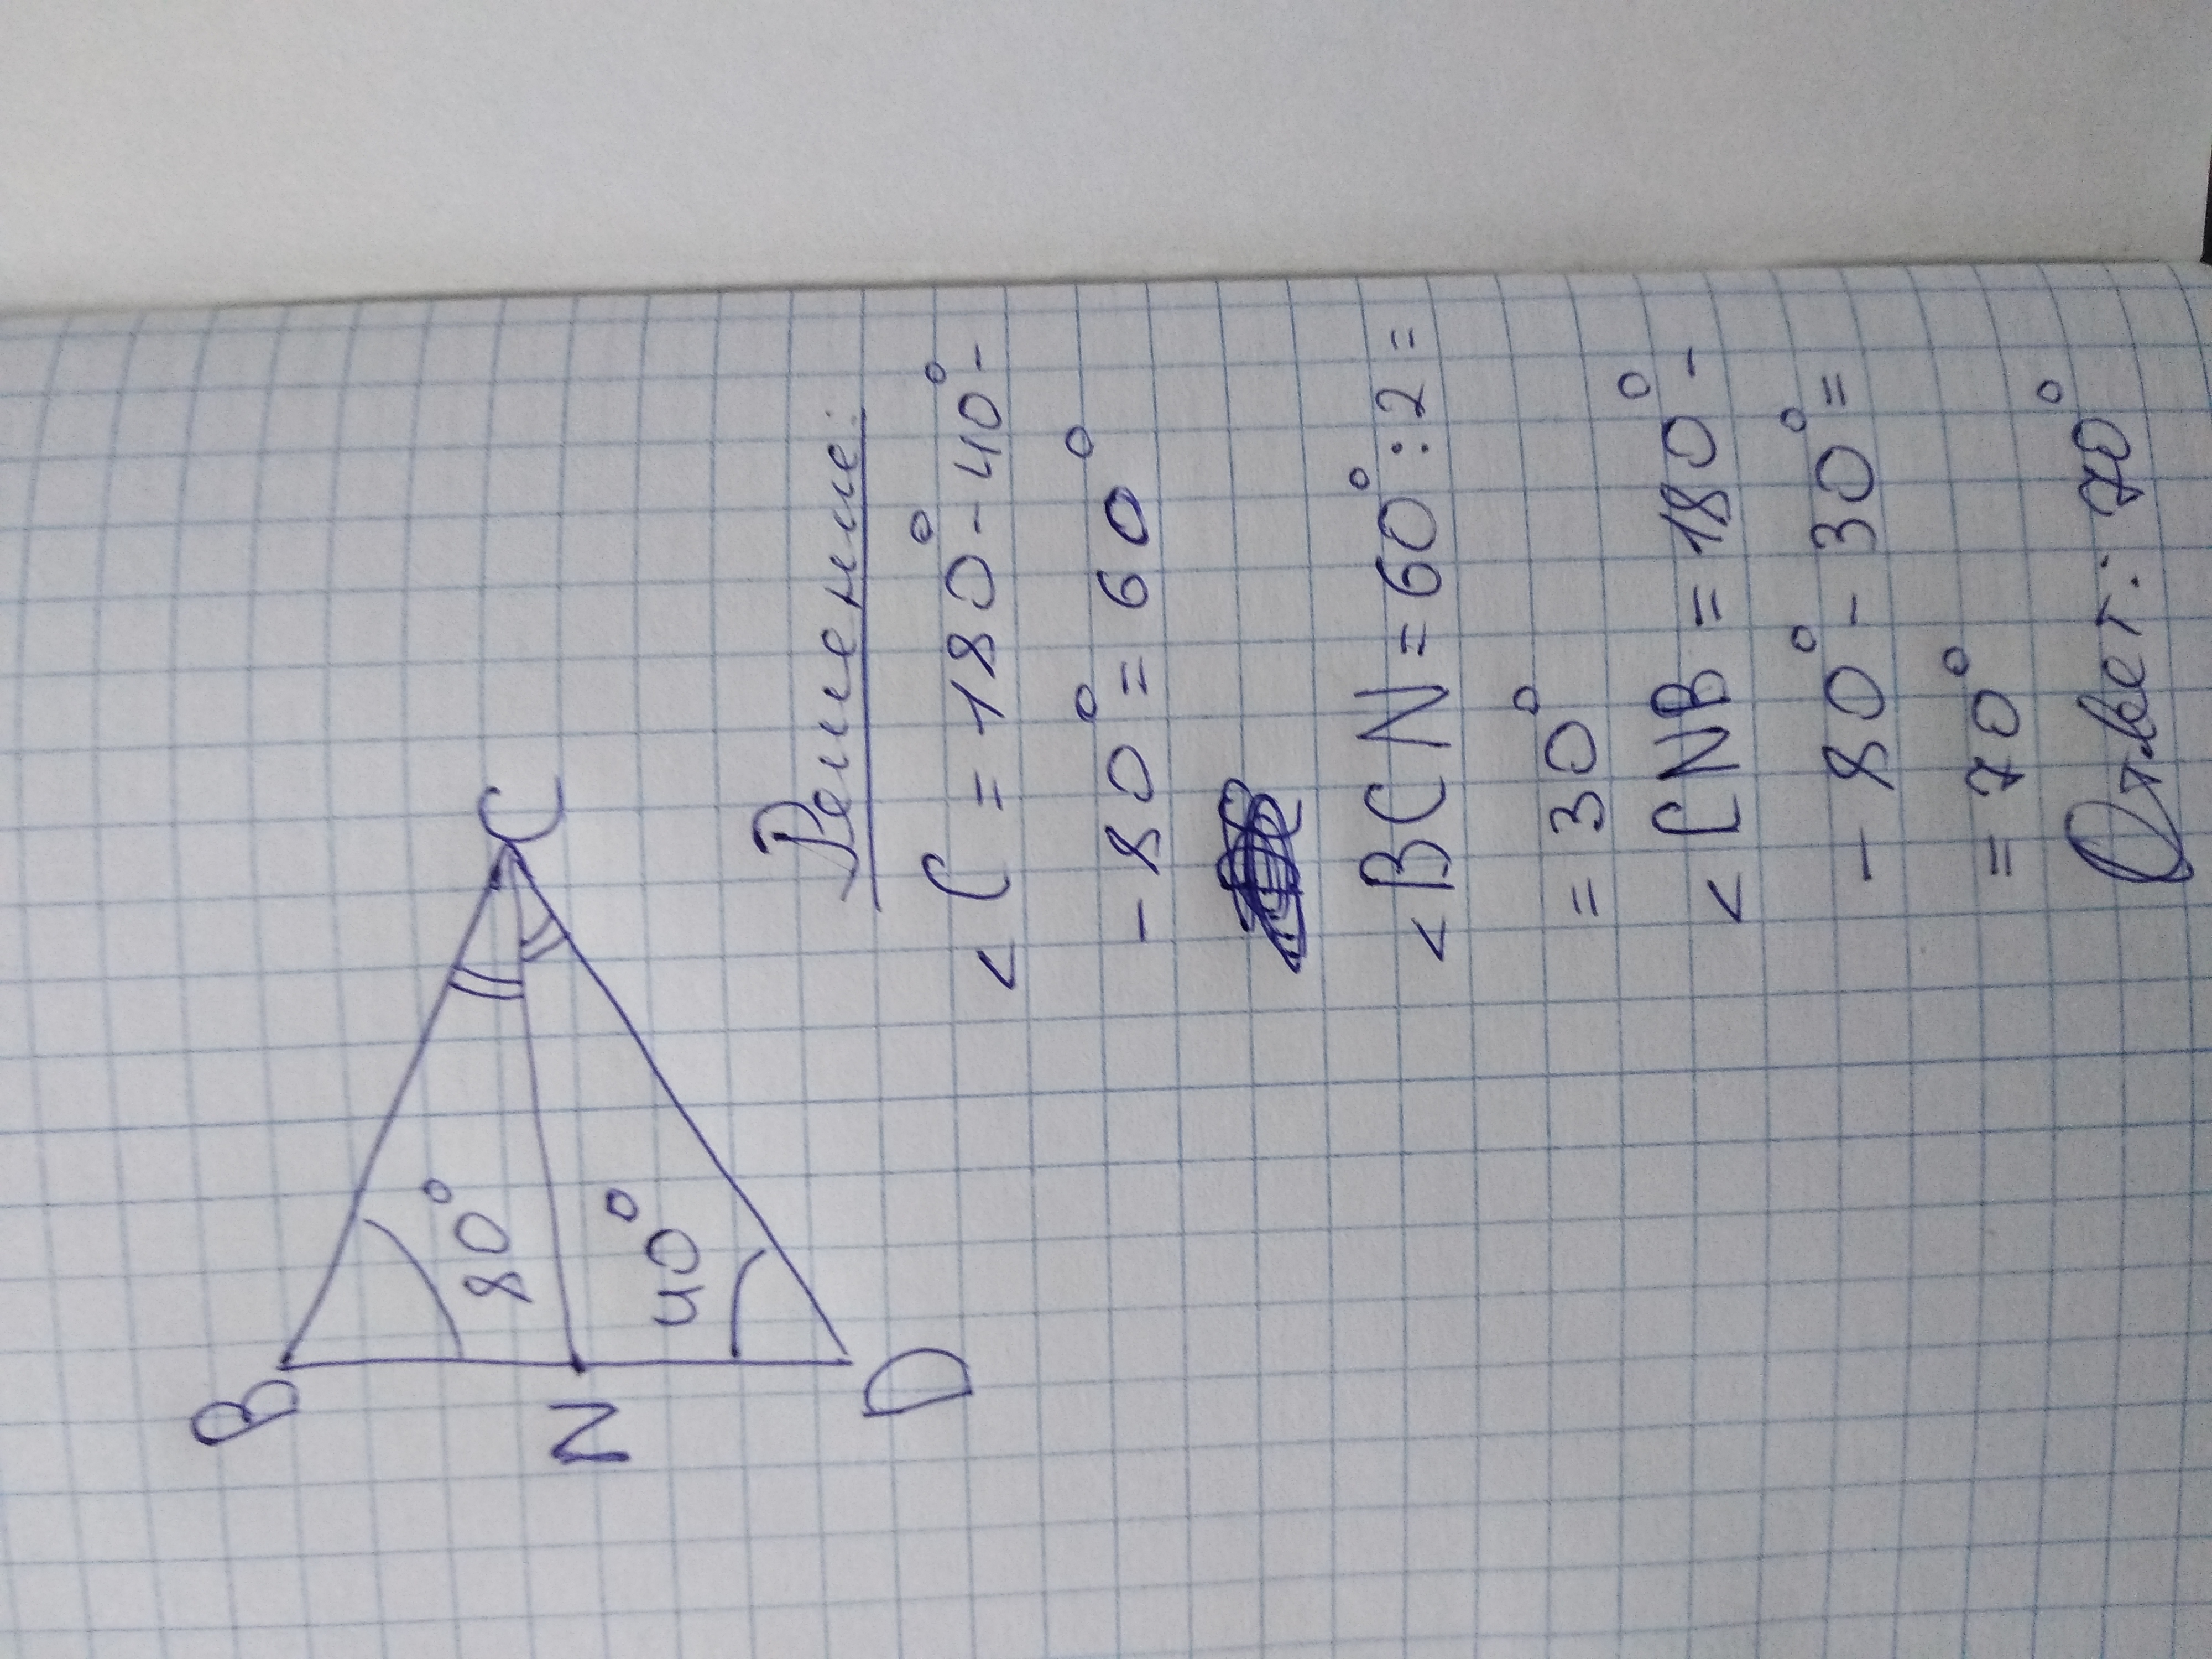 B
C
N
D
80°
40°
Решение:
< C = 180° - 40° -
- 80° = 60°
< BCN = 60° : 2 =
= 30°
< CNB = 180° -
- 80° - 30° =
= 70°
Ответ: 70°